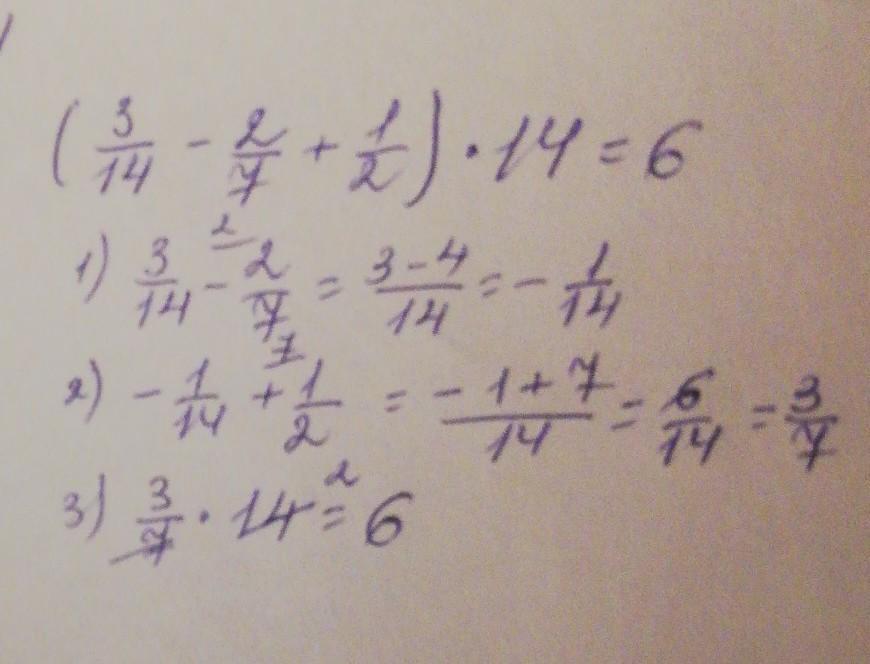 (3/14 - 2/7 + 1/2) · 14 = 6
1) 3/14 - 2/7 ² = 3-4/14 = - 1/14
2) - 1/14 + 1/2 ⁷ = -1+7/14 = 6/14 = 3/7
3) 3/7 · 14 ² = 6